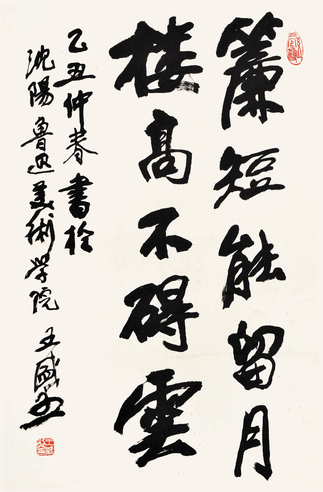 簾短能留月
楼高不碍雲
乙丑仲春書於
沈陽魯迅美術学院王盛烈